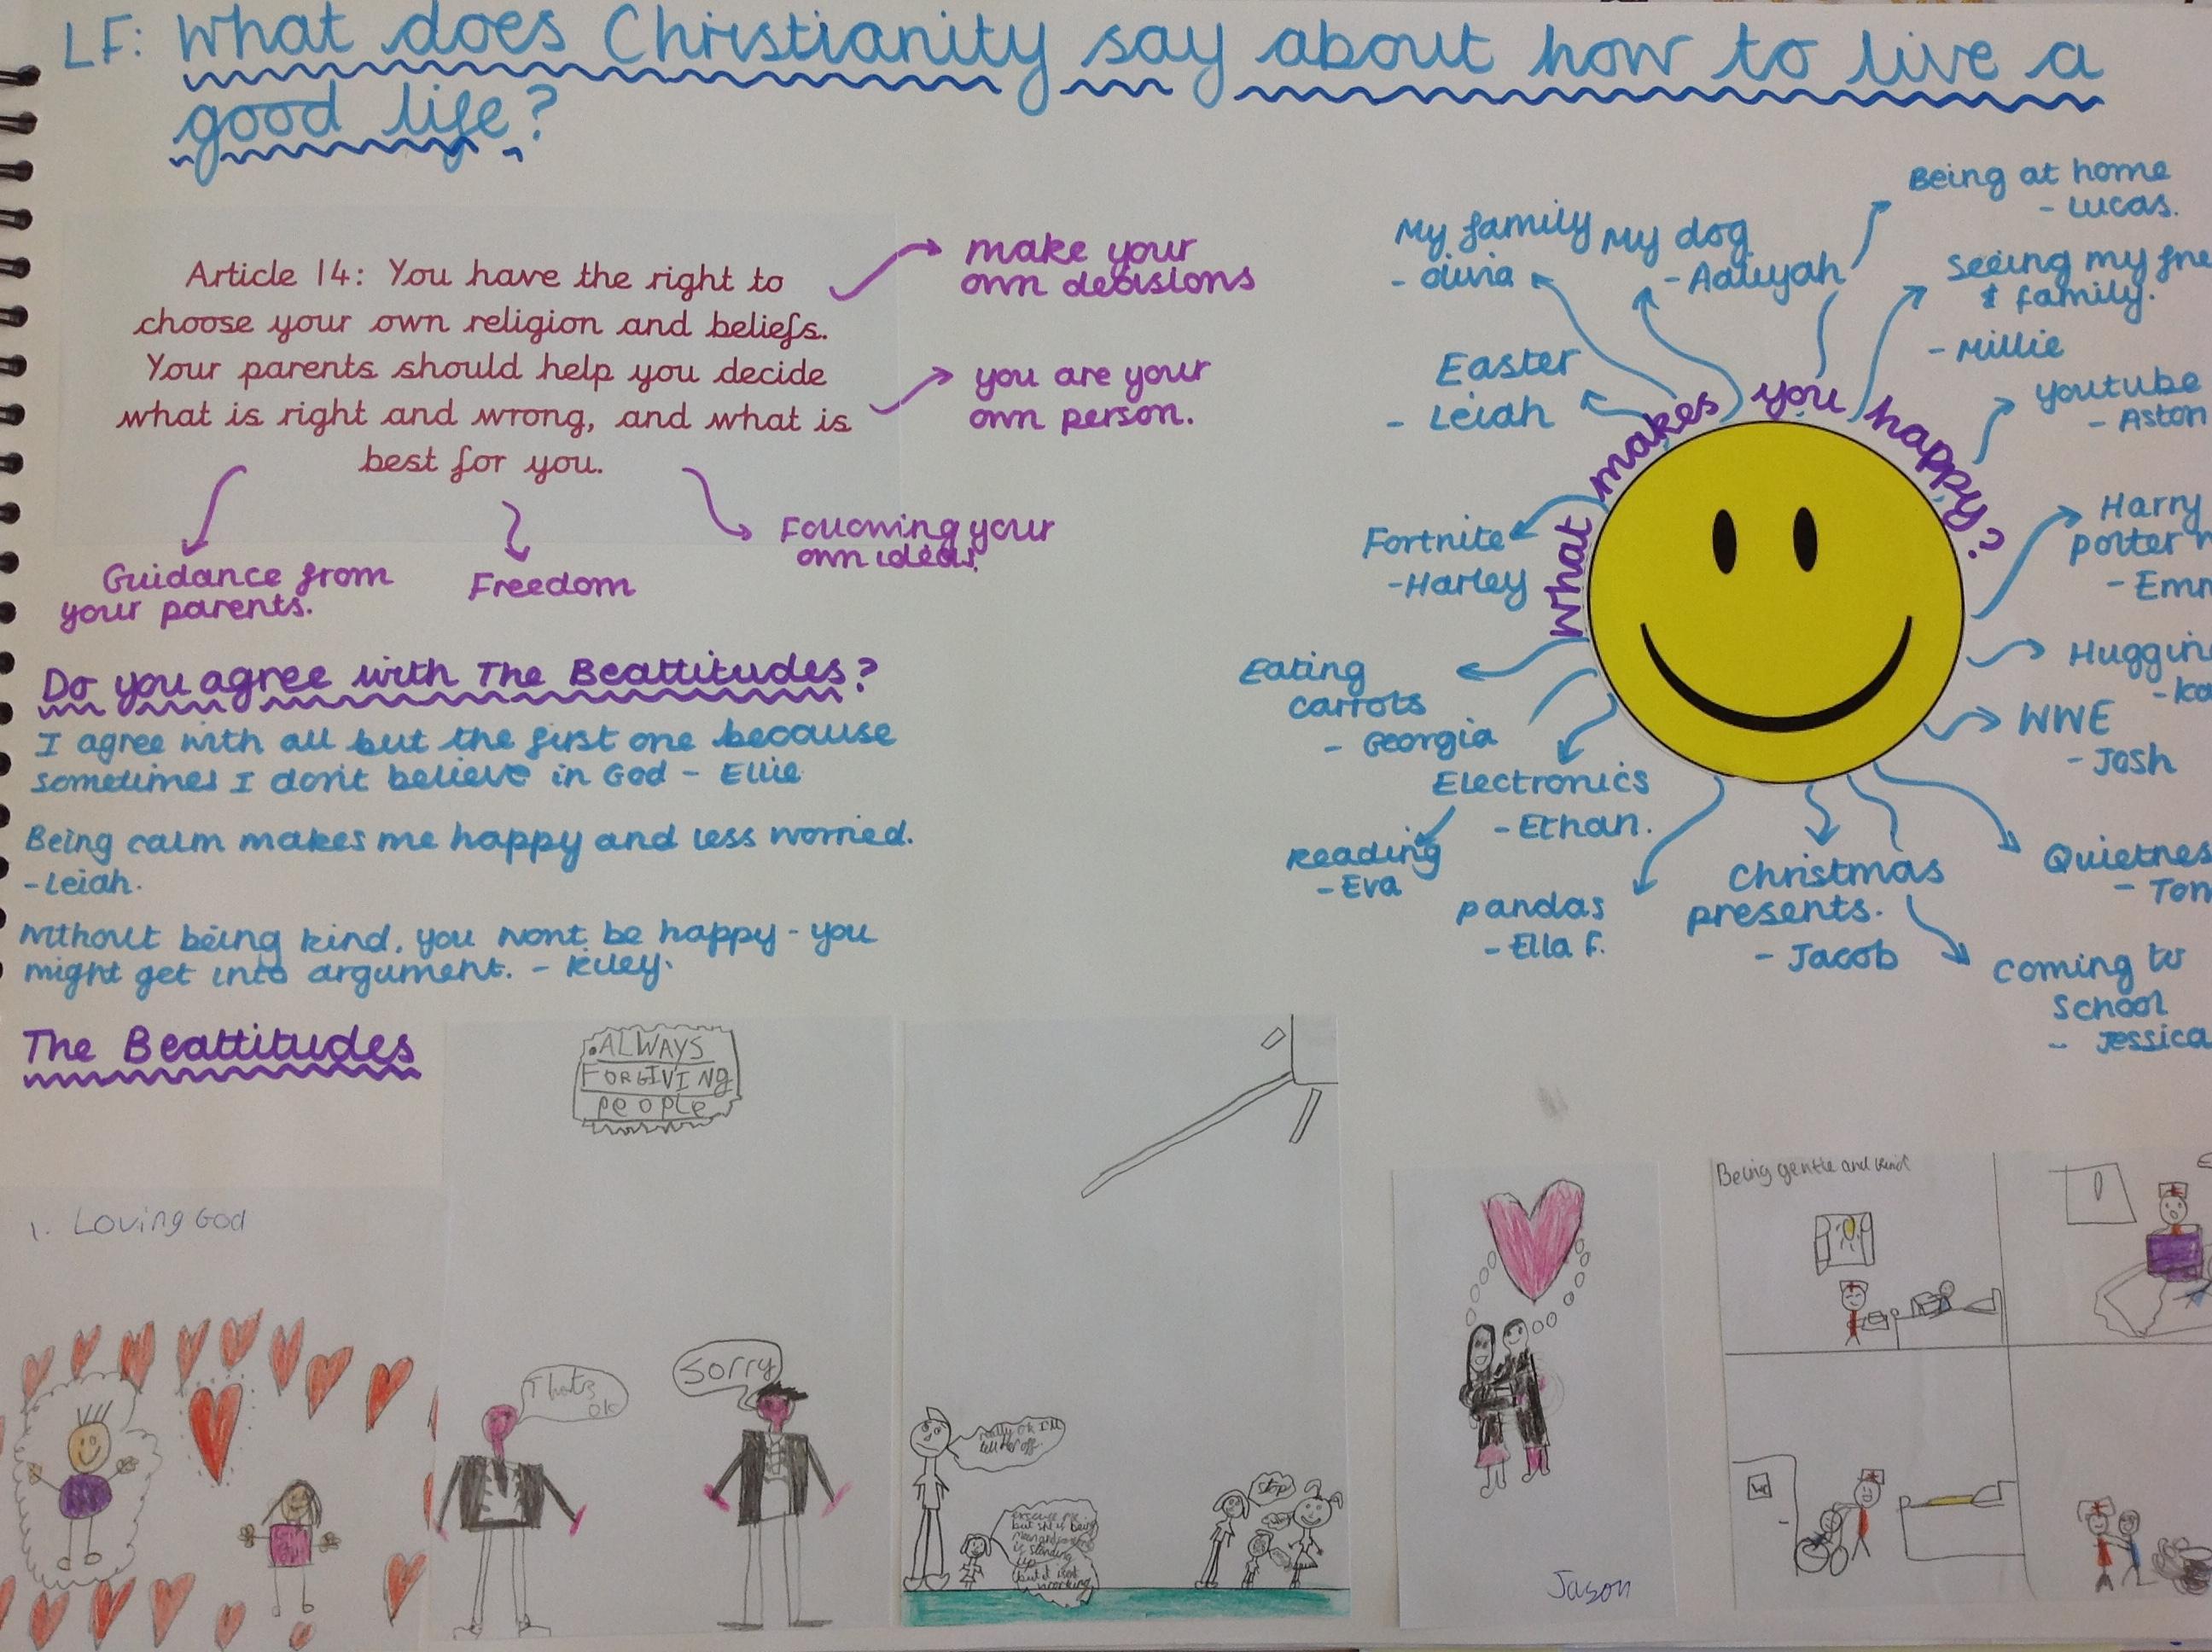 LF: What does Christianity say about how to live a
good life?
Article 14: You have the right to
choose your own religion and beliefs.
Your parents should help you decide
what is right and wrong, and what is
best for you.
make your
own decisions
you are your
own person.
Following your
own ideas.
Freedom
Guidance from
your parents.
Do you agree with The Beattitudes?
I agree with all but the first one because
sometimes I don't believe in God - Ellie
Being calm makes me happy and less worried.
- Leiah.
Without being kind, you wont be happy - you
might get into argument. - Riley.
What makes you happy?
My family
- Olivia
My dog
- Aaliyah
Being at home
- Lucas.
Seeing my
& family.
- Millie
Youtube
- Aston
Easter
- Leiah
Fortnite
- Harley
Harry
potter
Eating
carrots
- Georgia
WWE
- Josh
Electronics
- Ethan.
Reading
- Eva
pandas
- Ella F.
Christmas
presents.
- Jacob
Coming to
School
- Jessica
The Beattitudes
1. Loving God
ALWAYS
FORGIVING
PEOPLE
Thats
ok
Sorry
really ok I'll
tell her off.
excuse me
but she is being
is standing
up
but it isnt
working
Stop
Jason
Being gentle and kind